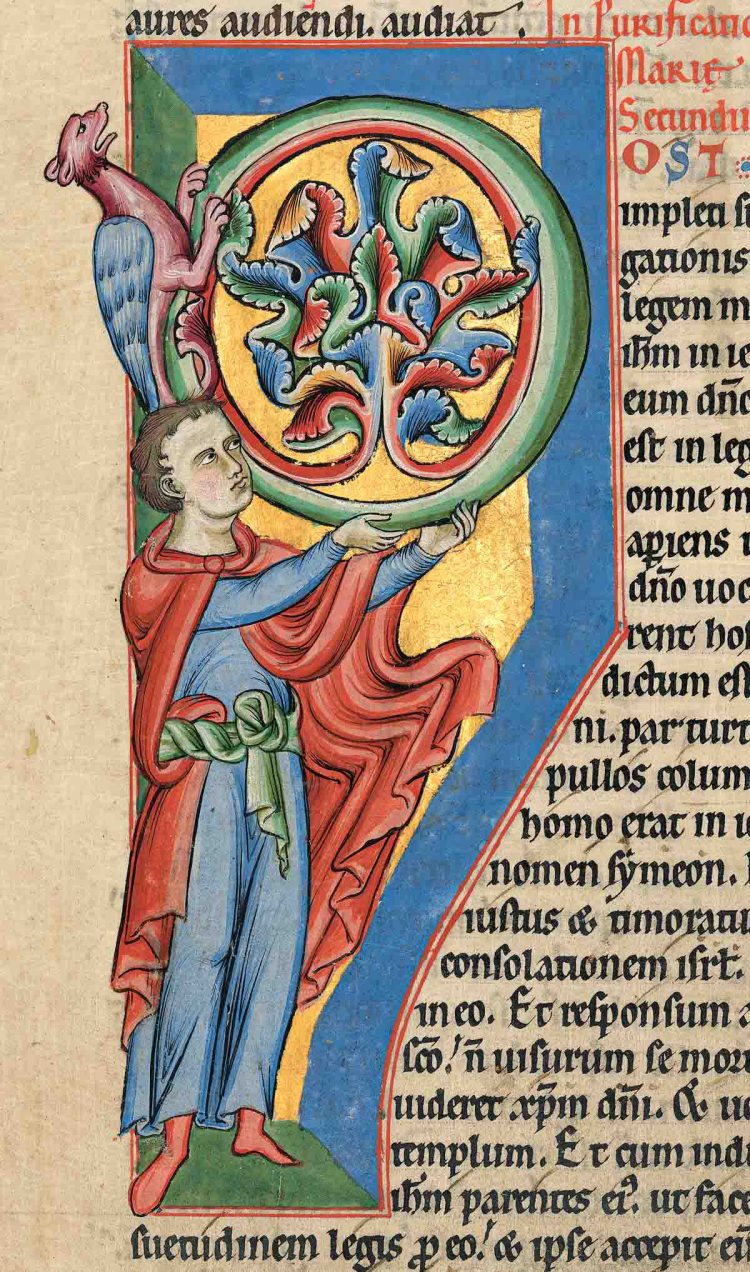 aures audiendi. audiat.
In Purificatio
Marie
Secundu
P OST
impleti s
gationis
legem m
ihm in ie
eum dño
est in leg
omne m
apiens u
dño uoc
rent hos
dictum es
ni. par turt
pullos colum
homo erat in i
nomen symeon.
iustus & timoratu
consolationem isrł.
in eo. Et responsum a
scō! ñ uisurum se mor
uideret xp̄m dñi. & ue
templum. Et cum indu
ihm parentes ei'. ut face
suetudinem legis p eo! & ipse accepit eū